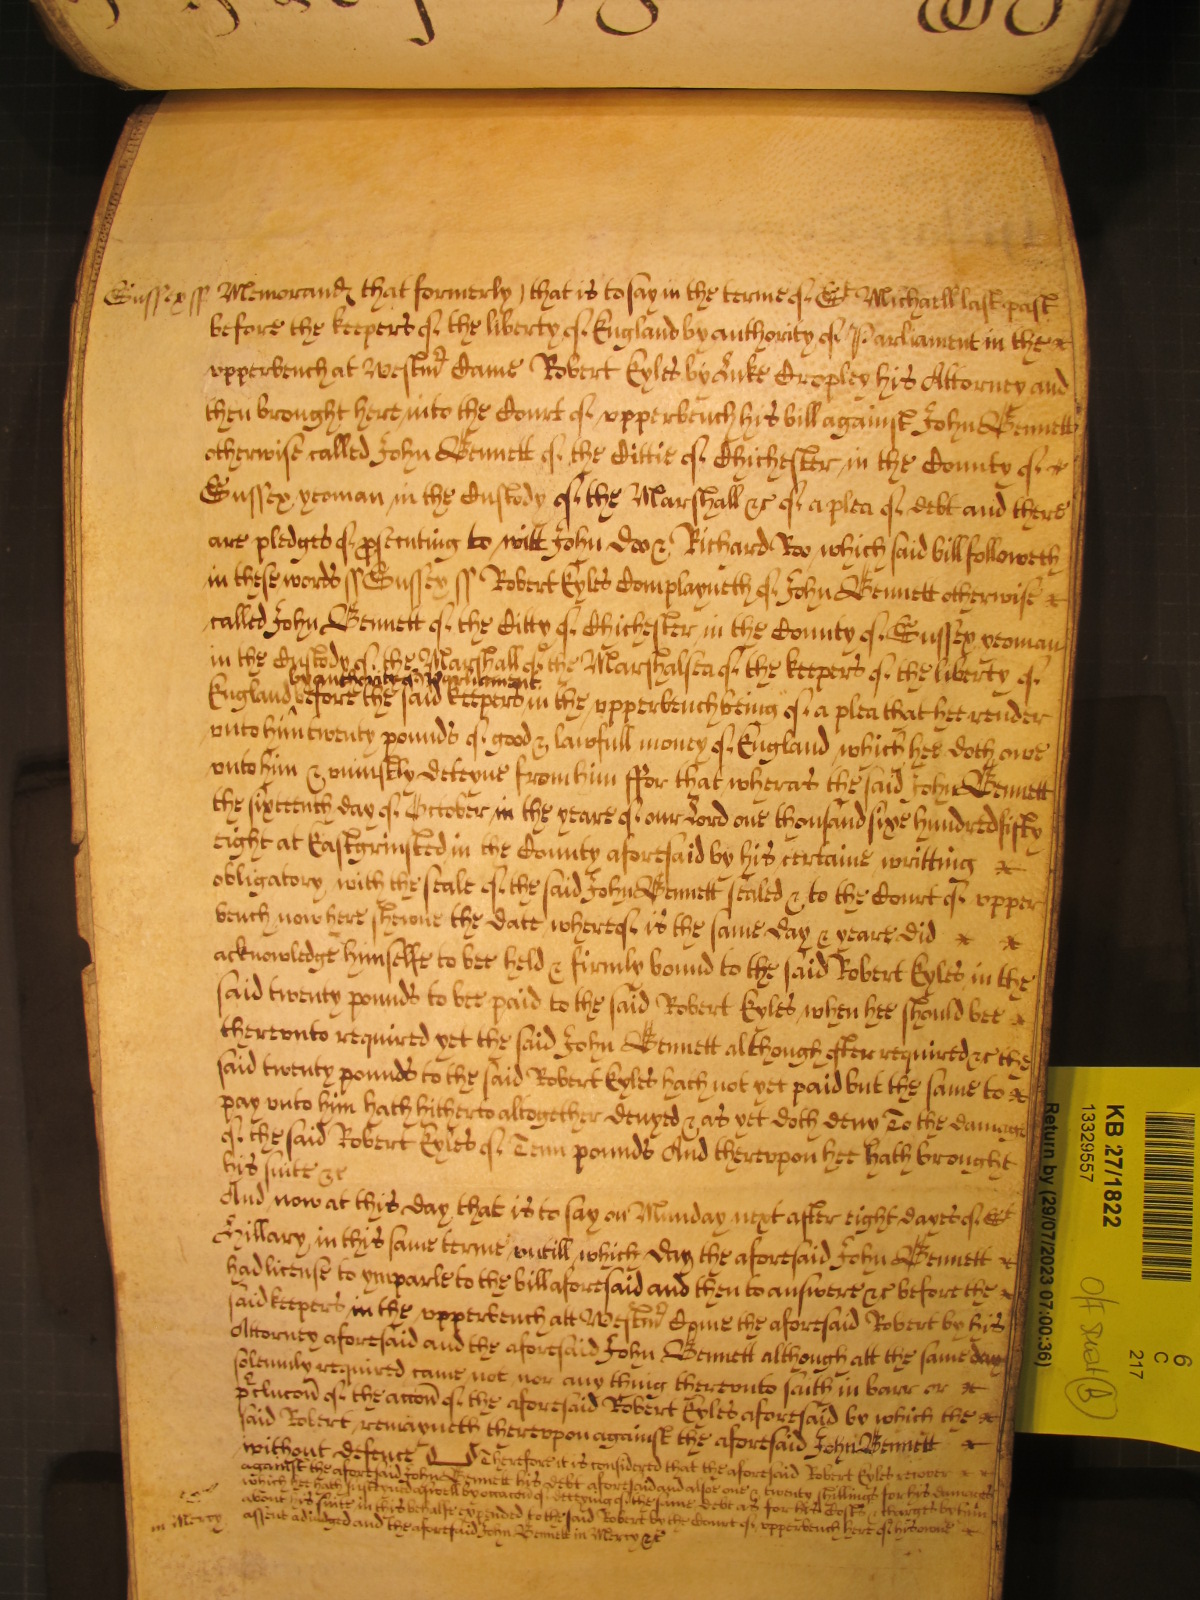 Sussex ss Memorand that formerly that is to say in the terme of St Michaell last past
before the keepers of the liberty of England by authority of Parliament in the
vpperbench at Westmr Came Robert Eyles by Luke Cropley his Attorney and
then brought here into the Court of vpperbench his bill against John Bennett
otherwise called John Bennett of the Cittie of Chichester in the County of
Sussex yeoman in the Custody of the Marshall &c of a plea of debt and there
are pledges of prosecuting to witt John Doo & Richard Roo which said bill followeth
in these words ss Sussex ss Robert Eyles Complayneth of John Bennett otherwise
called John Bennett of the Citty of Chichester in the County of Sussex yeoman
in the Custody of the Marshall of the Marshalsea of the keepers of the liberty of
by authority of Parliament
England before the said keepers in the vpperbench being of a plea that hee render
vnto him twenty pounds of good & lawfull money of England which hee doth owe
vnto him & vniustly deteyne from him ffor that wheras the said John Bennett
the sixteenth day of October in the yeare of our Lord one thousand sixe hundred fifty
eight at Eastgrinsted in the County aforesaid by his certaine writting
obligatory with the seale of the said John Bennett sealed & to the Court of vpper
bench now here shewne the date whereof is the same day & yeare did
acknowledge himselfe to bee held & firmly bound to the said Robert Eyles in the
said twenty pounds to bee paid to the said Robert Eyles when hee should bee
therevnto required yet the said John Bennett although often required &c the
said twenty pounds to the said Robert Eyles hath not yet paid but the same to
pay vnto him hath hitherto altogether denyed & as yet doth deny To the damage
of the said Robert Eyles of Tenn pounds And therevpon hee hath brought
his suite &c
And now at this day that is to say on Munday next after eight dayes of St
Hillary in this same terme vntill which day the aforesaid John Bennett
had license to ymparle to the bill aforesaid and then to answere &c before the
said keepers in the vpperbench att Westmr Came the aforesaid Robert by his
Attorney aforesaid and the aforesaid John Bennett although att the same day
solemnly required came not nor any thing therevnto saith in barr or
p'clucon of the accon of the aforesaid Robert Eyles aforesaid by which the
said Robert remayneth therevpon against the aforesaid John Bennett
without defence Therefore it is considered that the aforesaid Robert Eyles recover
against the aforesaid John Bennett his debt aforesaid and alsoe one & twenty shillings for his damages
which hee hath susteyned aswell by occacon of deteyning of the same debt as for his Costs & charges by him
about his suite in this behalfe expended to the said Robert by the Court of vpperbench here of his owne
in Mercy assent adiudged and the aforesaid John Bennett in Mercy &c
KB 27/1822
13329557
Return by (29/07/2023 07:00:36)
6
C
217